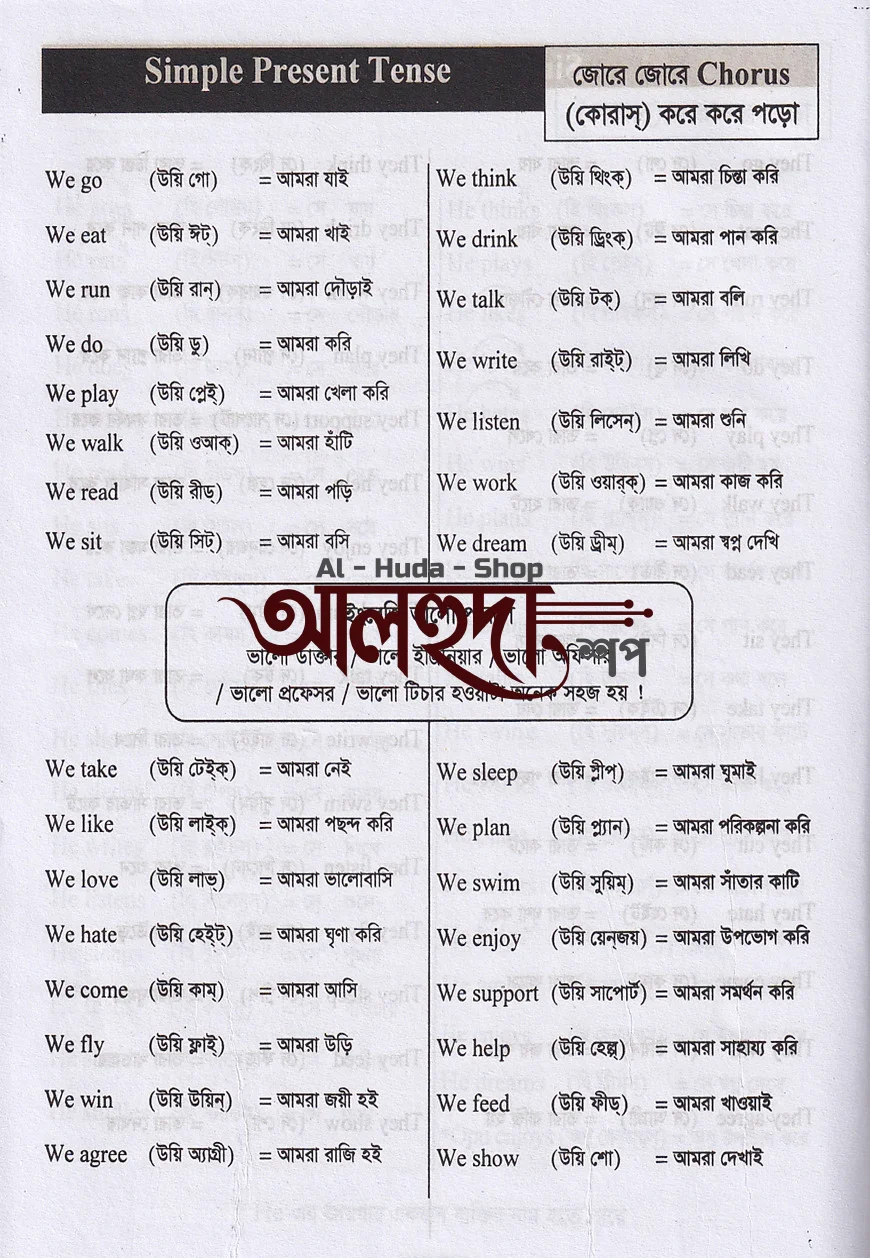 Simple Present Tense
জোরে জোরে Chorus
(কোরাস্) করে করে পড়ো
We go (উয়ি গো) = আমরা যাই
We eat (উয়ি ঈট্) = আমরা খাই
We run (উয়ি রান্) = আমরা দৌড়াই
We do (উয়ি ডু) = আমরা করি
We play (উয়ি প্লেই) = আমরা খেলা করি
We walk (উয়ি ওআক্) = আমরা হাঁটি
We read (উয়ি রীড্) = আমরা পড়ি
We sit (উয়ি সিট্) = আমরা বসি
We think (উয়ি থিংক্) = আমরা চিন্তা করি
We drink (উয়ি ড্রিংক্) = আমরা পান করি
We talk (উয়ি টক্) = আমরা বলি
We write (উয়ি রাইট্) = আমরা লিখি
We listen (উয়ি লিসেন্) = আমরা শুনি
We work (উয়ি ওয়ার্ক্) = আমরা কাজ করি
We dream (উয়ি ড্রীম্) = আমরা স্বপ্ন দেখি
Al – Huda – Shop
আলহুদা শপ
ভালো ডাক্তার / ভালো ইঞ্জিনিয়ার / ভালো অফিসার
/ ভালো প্রফেসর / ভালো টিচার হওয়াটা অনেক সহজ হয় !
We take (উয়ি টেইক্) = আমরা নেই
We like (উয়ি লাইক্) = আমরা পছন্দ করি
We love (উয়ি লাভ্) = আমরা ভালোবাসি
We hate (উয়ি হেইট্) = আমরা ঘৃণা করি
We come (উয়ি কাম্) = আমরা আসি
We fly (উয়ি ফ্লাই) = আমরা উড়ি
We win (উয়ি উয়িন্) = আমরা জয়ী হই
We agree (উয়ি অ্যাগ্রী) = আমরা রাজি হই
We sleep (উয়ি স্লীপ) = আমরা ঘুমাই
We plan (উয়ি প্ল্যান) = আমরা পরিকল্পনা করি
We swim (উয়ি সুয়িম্) = আমরা সাঁতার কাটি
We enjoy (উয়ি য়েন্‌জয়) = আমরা উপভোগ করি
We support (উয়ি সাপোর্ট) = আমরা সমর্থন করি
We help (উয়ি হেল্প) = আমরা সাহায্য করি
We feed (উয়ি ফীড্) = আমরা খাওয়াই
We show (উয়ি শো) = আমরা দেখাই